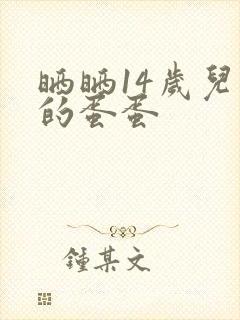 晒晒14歲兒
的蛋蛋
鍾某文